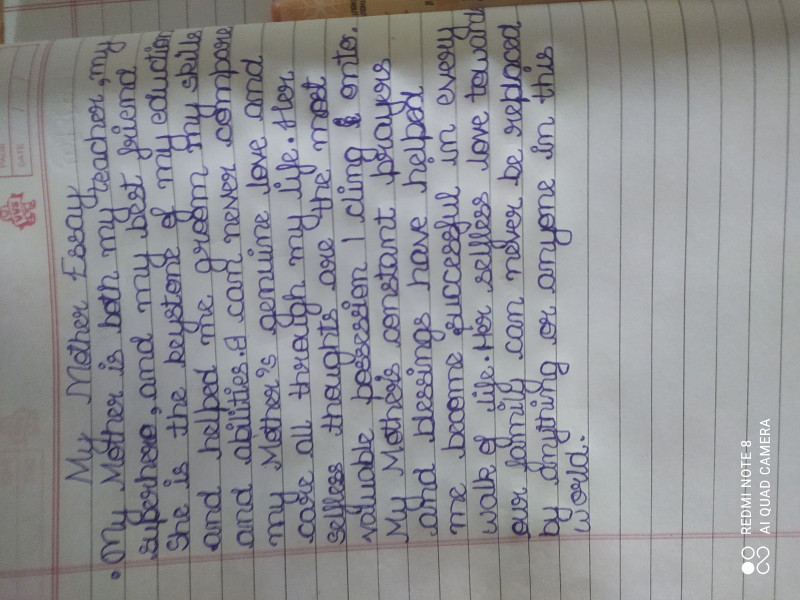 My Mother Essay
• My Mother is both my teacher, my
superhero, and my best friend
She is the keystone of my eduction
and helped me groom my skills
and abilities. I can never compare
my Mother's genuine love and
care all through my life. Her
selless thoughts are the most
valuable possession I cling onto.
My Mother's constant prayers
and blessings have helped
me become successful in every
walk of life. Her selless love toward
our family can never be replaced
by anything or anyone in this
world.
PAGE
DATE
REDMI NOTE 8
AI QUAD CAMERA